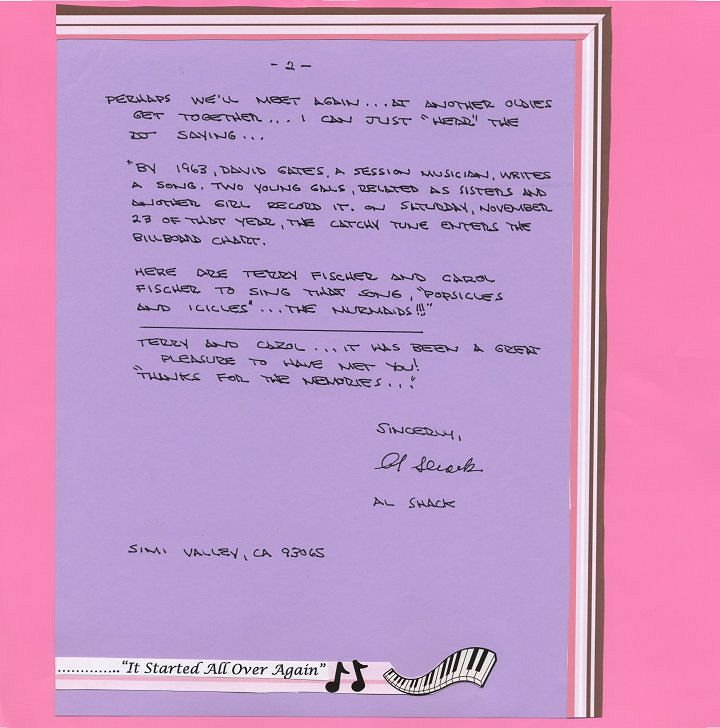 - 2 -
PERHAPS WE'LL MEET AGAIN...AT ANOTHER OLDIES
GET TOGETHER... I CAN JUST "HEAR" THE
DJ SAYING...
"BY 1963, DAVID GATES, A SESSION MUSICIAN, WRITES
A SONG. TWO YOUNG GALS, RELATED AS SISTERS AND
ANOTHER GIRL RECORD IT. ON SATURDAY, NOVEMBER
23 OF THAT YEAR, THE CATCHY TUNE ENTERS THE
BILLBOARD CHART.
HERE ARE TERRY FISCHER AND CAROL
FISCHER TO SING THAT SONG, "POPSICLES
AND ICICLES"...THE MURMAIDS!!!"
TERRY AND CAROL...IT HAS BEEN A GREAT
PLEASURE TO HAVE MET YOU!
"THANKS FOR THE MEMORIES..."
SINCERLY,
Al Shack
AL SHACK
SIMI VALLEY, CA 93065
............."It Started All Over Again"